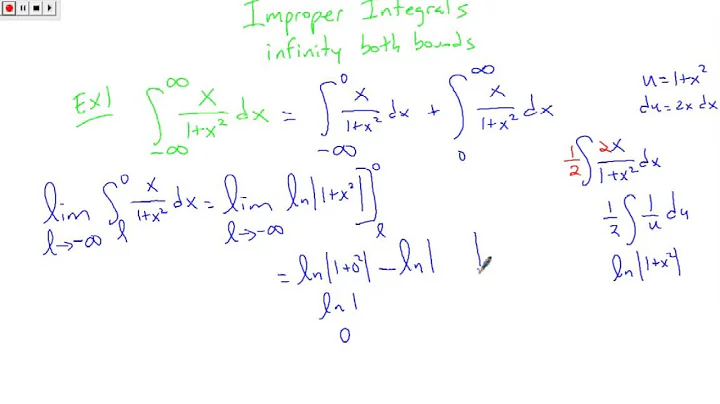 Improper Integrals
infinity both bounds
Ex1 ∫_{-∞}^{∞} x/(1+x²) dx = ∫_{-∞}^{0} x/(1+x²) dx + ∫_{0}^{∞} x/(1+x²) dx
u = 1+x²
du = 2x dx
1/2 ∫ 2x/(1+x²) dx
1/2 ∫ 1/u du
ln|1+x²|
lim_{l→-∞} ∫_{l}^{0} x/(1+x²) dx = lim_{l→-∞} ln|1+x²|]_{l}^{0}
= ln|1+0²| - ln| |
ln 1
0